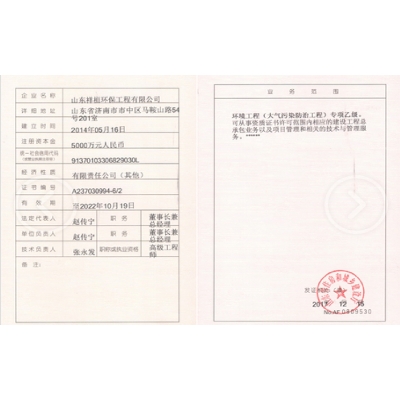 企业名称 山东祥桓环保工程有限公司
详细地址 山东省济南市市中区马鞍山路54
号201室
建立时间 2014年05月16日
注册资本金 5000万元人民币
统一社会信用代码
91370103306829030L
经济性质 有限责任公司（其他）
证书编号 A237030994-6/2
有效期 至2022年10月19日
法定代表人 赵传宁 职务 董事长兼
总经理
单位负责人 赵传宁 职务 董事长兼
总经理
技术负责人 张永发 职称或执业资格 高级工程
师
备注：
业务范围
环境工程（大气污染防治工程）专项乙级。
可从事资质证书许可范围内相应的建设工程总
承包业务以及项目管理和相关的技术与管理服
务。******
2017 12 15
No.AF 0889530